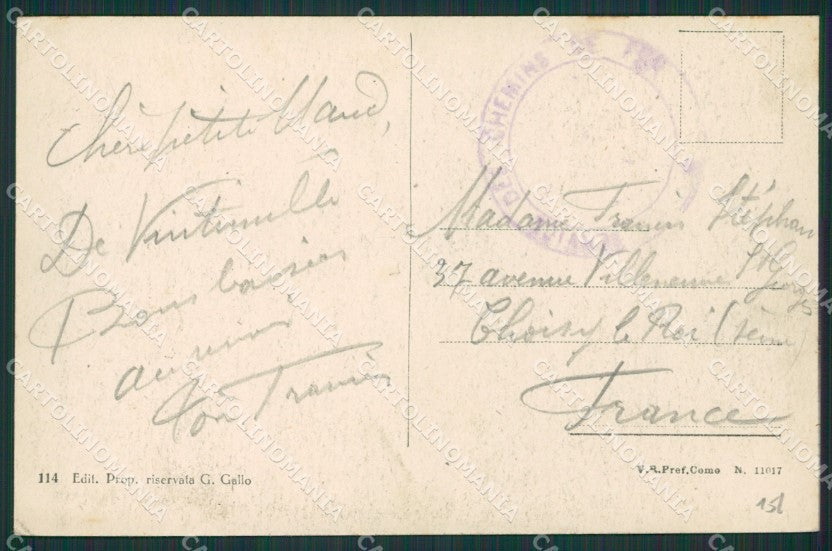 Chère petite Maud,
De Vintimille
Bons baisers
au revoir
Ton Francis
CHEMINS DE FER
Madame Francis Stéphan
37 avenue Villeneuve St Georges
Choisy le Roi (Seine)
France
114 Edit. Prop. riservata G. Gallo
V.R.Pref.Como N. 11017
151
CARTOLINOMANIA